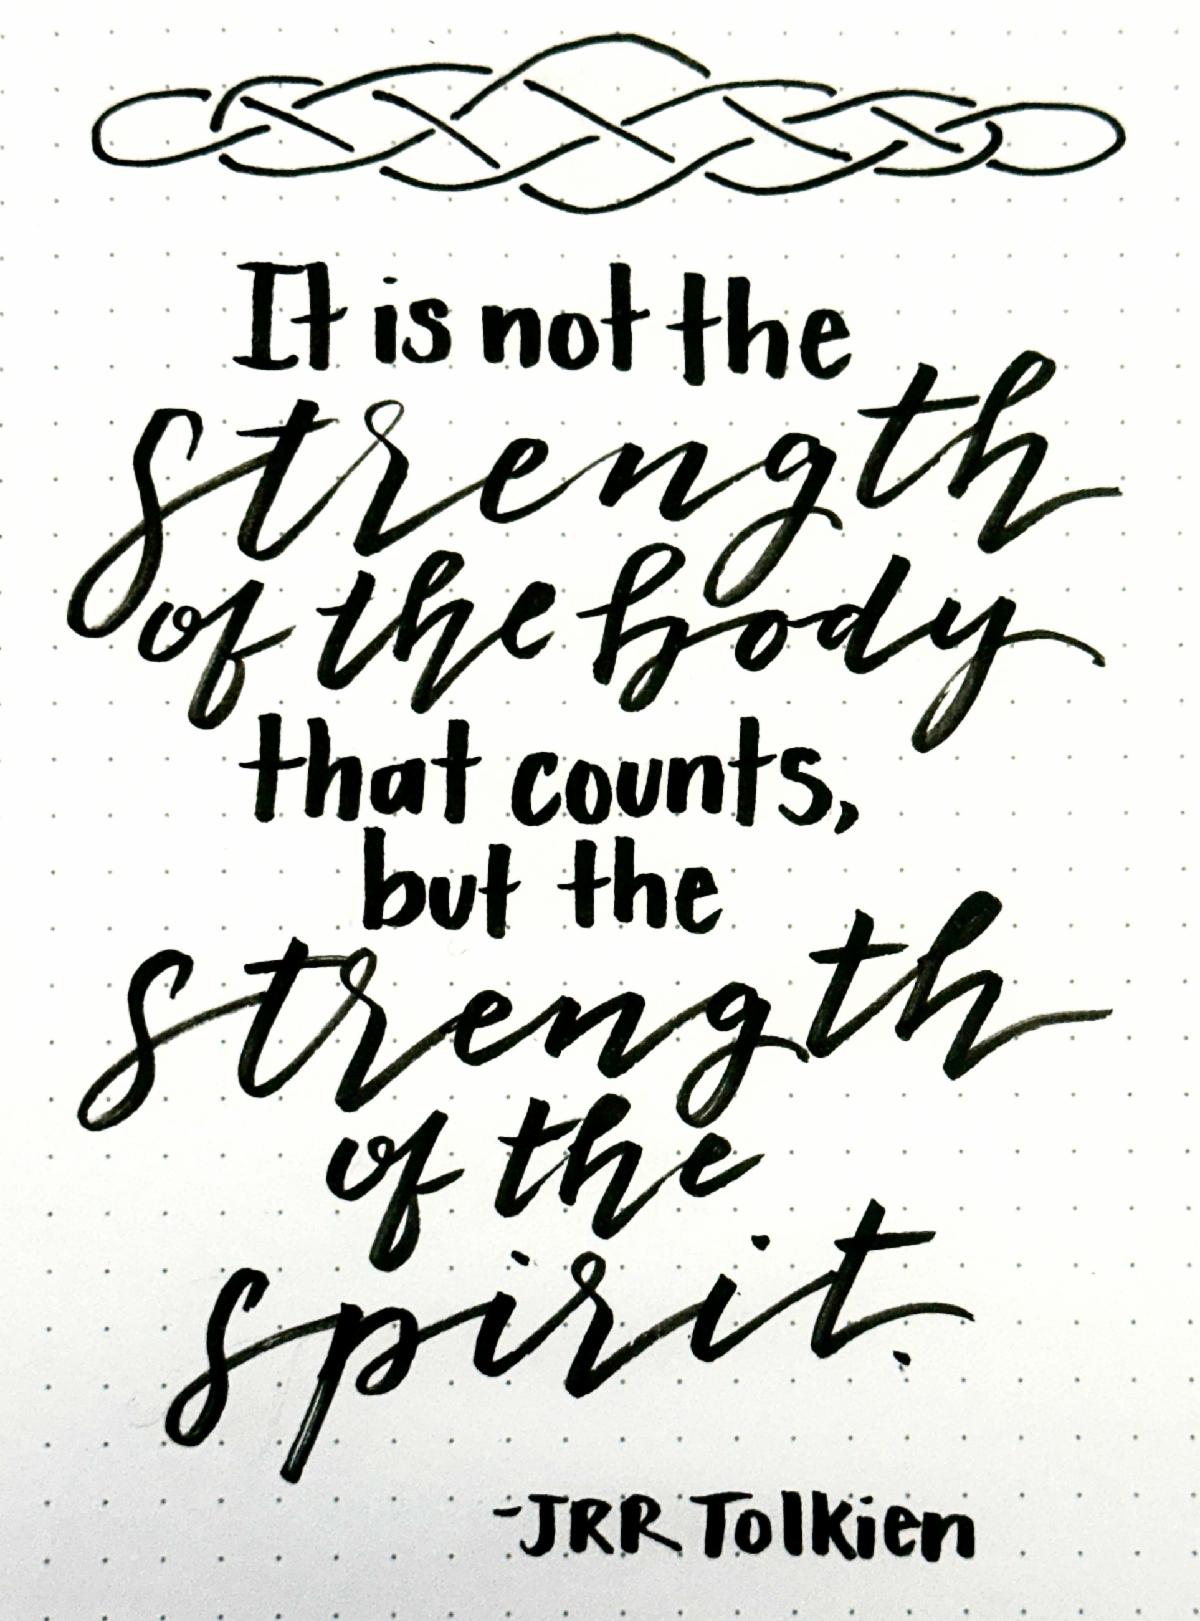 It is not the
strength
of the body
that counts,
but the
strength
of the
spirit.
-JRR Tolkien